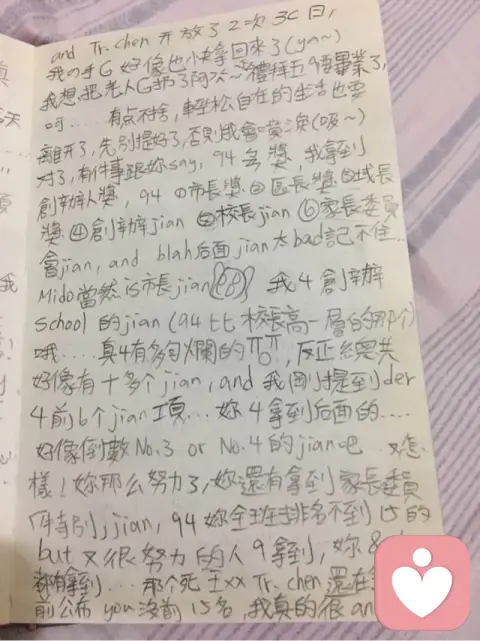 and Tr. chen 开放了2次3C日,
我の手G好像也快拿回來了(ya~)
我想把老人G扔了阿 礼拜五9要畢業了,
呵.... 有点不捨, 輕松自在的生活也要
離开了, 先別提好了, 否則我会噴淚(吸~)
对了, 有件事跟妳say, 94 獎, 我拿到
創辦人獎, 94 ①市長獎②區長獎③域長
獎④創辦jian⑤校長jian⑥家長委員
會jian, and blah后面jian太bad記不住...
Mido當然is市長jian 我4創辦
school的jian(94比校長高一層的那个)
哦.... 真4有多夠爛的, 反正總共
好像有十多个jian, and 我剛提到der
4前6个jian項... 妳4拿到后面的....
好像倒數No.3 or No.4的jian吧 又怎
樣! 妳那么努力了, 妳還有拿到家長委員
「特別」jian, 94妳全班排名不到15的
but又很努力的人9拿到, 妳&
都有拿到... 那个死王xx Tr. chen還在
前公布you沒前15名, 我真的很an